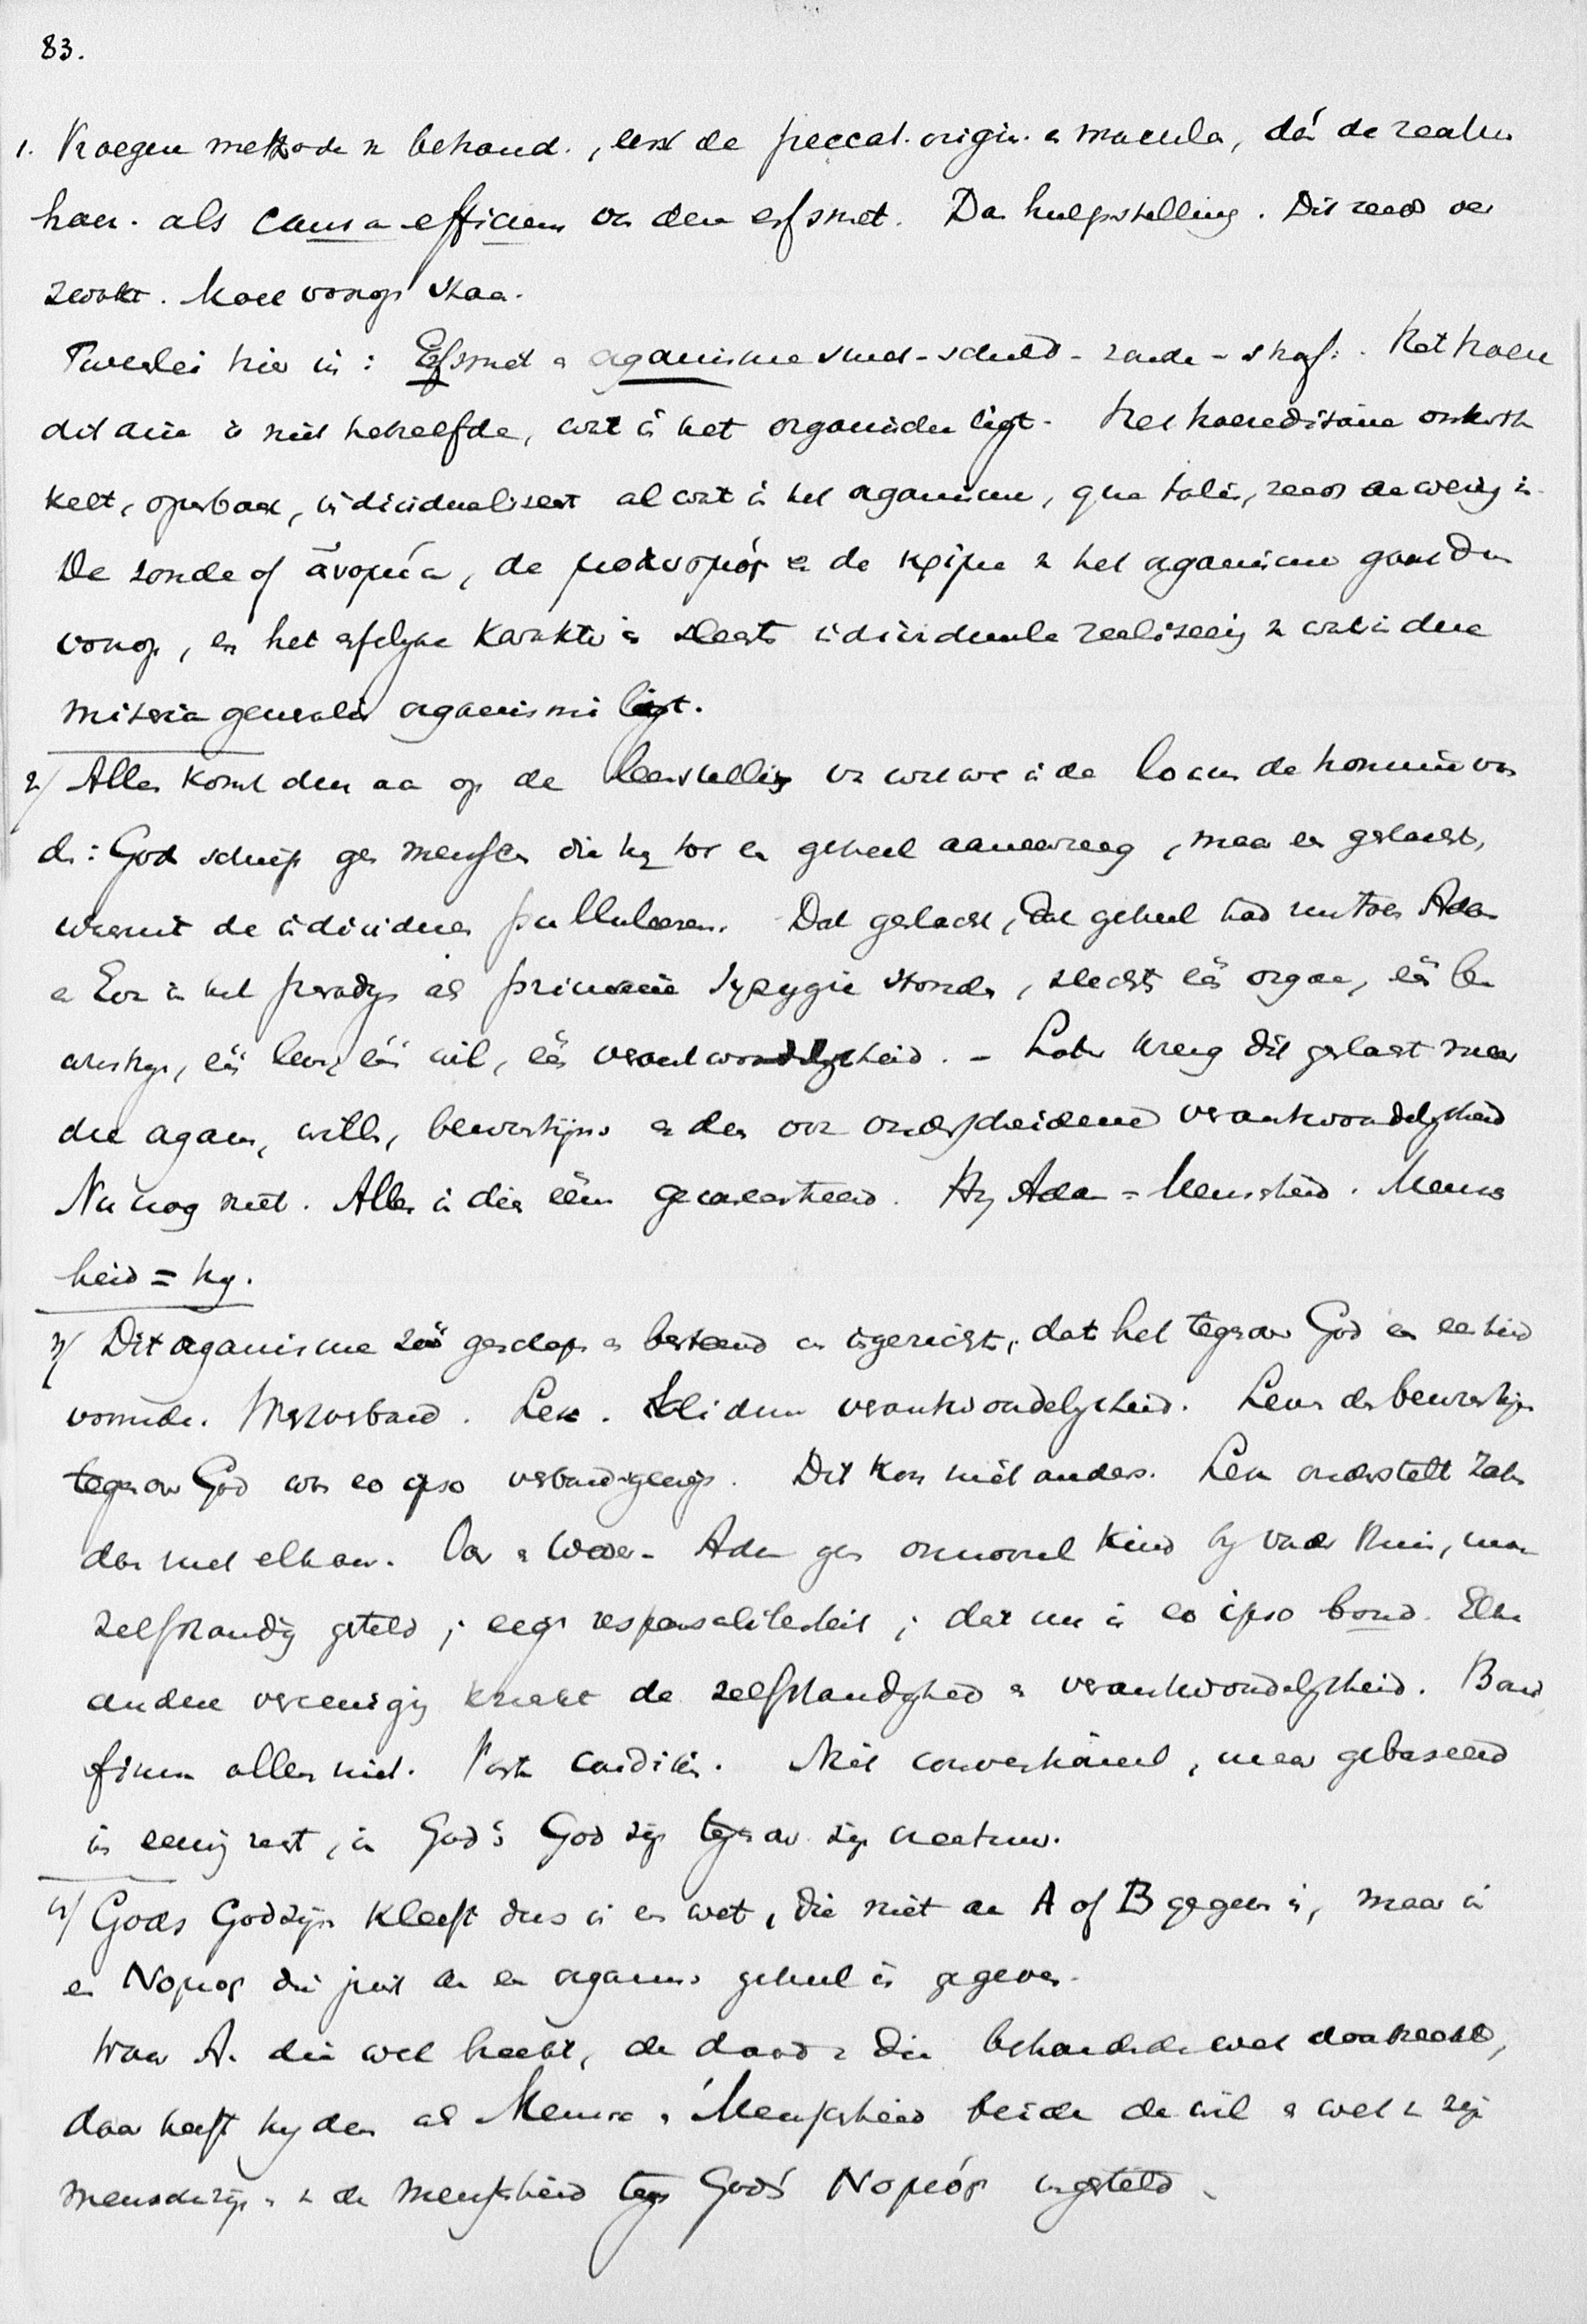 83.
1. Vroegere methode v behand., eerst de peccat. origin. e macula, dán de reatus
haer. als causa efficiens van den erfsmet. Dan hulpstelling. Dit reeds ver
zwakt. Moet voorop staa.
Tweeërlei hier in: Erfsmet e organisme smet-schuld-zonde-straf. Het haere
ditaire is niet hetzelfde, wat in het organische ligt. Het haereditaire ontwik
kelt, openbaart, individualiseert al wat in het organisme, qua talis, reeds aanwezig is.
De zonde of ἀνομία, de μολυσμός e de κρίμα v het organisme gaat dus
voorop, en het erfelyke karakter is slechts individueele realiseering v wat in die
miseria generalis organismi ligt.
2/ Alles komt dus aa op de leerstelling va wat we in de locus de homine von
de: God schiep geen menschen die hy tot en geheel aaneenreeg, maar en geslacht,
waaruit de individuen pulluleeren. Dat geslacht, dat geheel had toen Adam
e Eva in het paradys als primaire syzygie stonden, slechts één orgaan, één be
wustzyn, één leven, één wil, één verantwoordelykheid. – Later kreeg dit geslacht meer
dere organen, willen, bewustzyns e dus ook onderscheidene verantwoordelykheid
Nu nog niet. Alles in die ééne geconcentreerd. Hy Adam = Menschheid. Mensch
heid = hy.
3/ Dit organisme zóó geschapen e bestaand en ingericht, dat het tegenover God en eenheid
vormde. Werkverband. Leven. Solidaire verantwoordelykheid. Leven der bewustzyn
tegenover God was eo ipso verbandgevend. Dit kon niet anders. Leven onderstelt
met elkaar. Over e weder. Adam geen onmondig kind by vader thuis, maar
zelfstandig gesteld; eigen responsabiliteit; dat nu is eo ipso bond. Elke
andere vereeniging krenkt de zelfstandigheid e verantwoordelykheid. Band
alles niet. Niet conventioneel, maar gebaseerd
in eeuwig recht, in God's God zyn tegenover zyn creatuur.
4/ Gods Godzyn kleeft dus in en wet, die niet an A of B gegeven is, maar in
en Νομος die juist an en organisch geheel is gegeven.
Waar A. die wet breekt, de daad die wet doorbreekt,
daar heeft hy dus als Mensch e Menschheid beide de wil e wet v zyn
menschzyn e v de menschheid tegen Gods Νομός ingesteld.